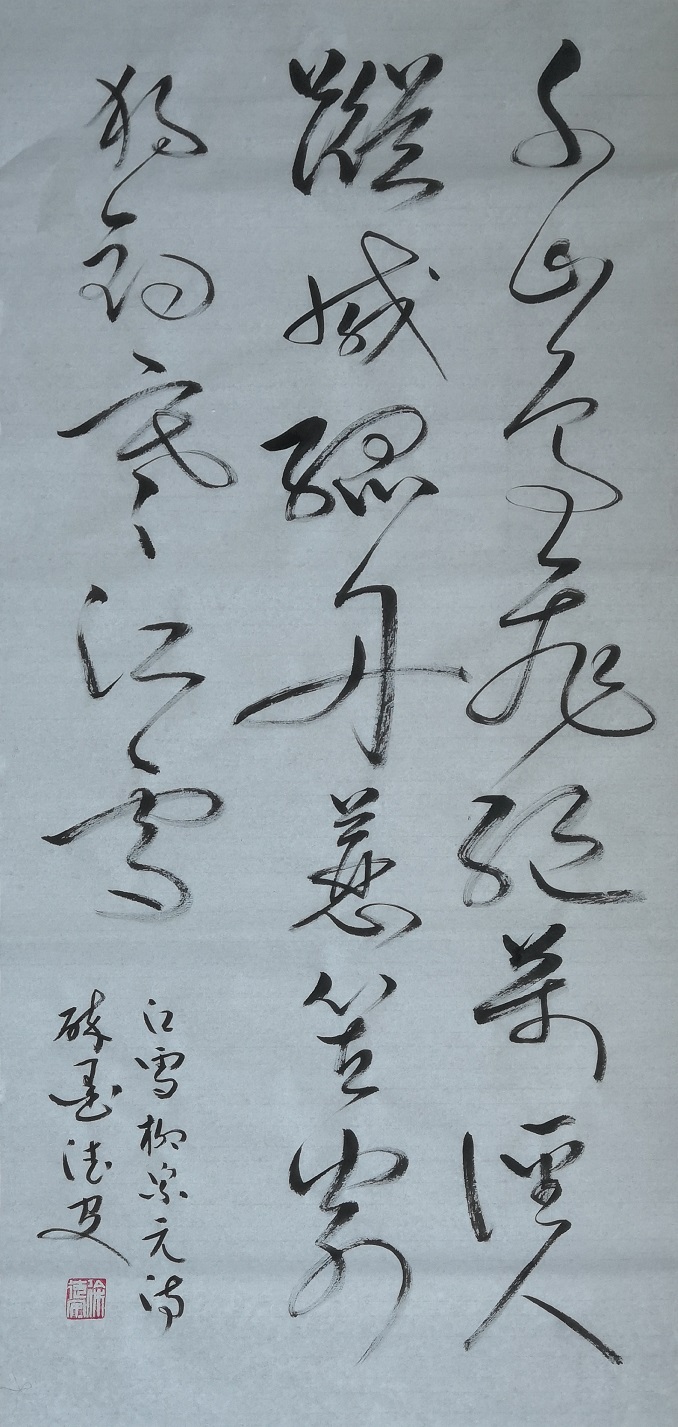 千山鳥飛絕萬徑人
蹤滅孤舟蓑笠翁
獨釣寒江雪
江雪柳宗元詩
醉墨